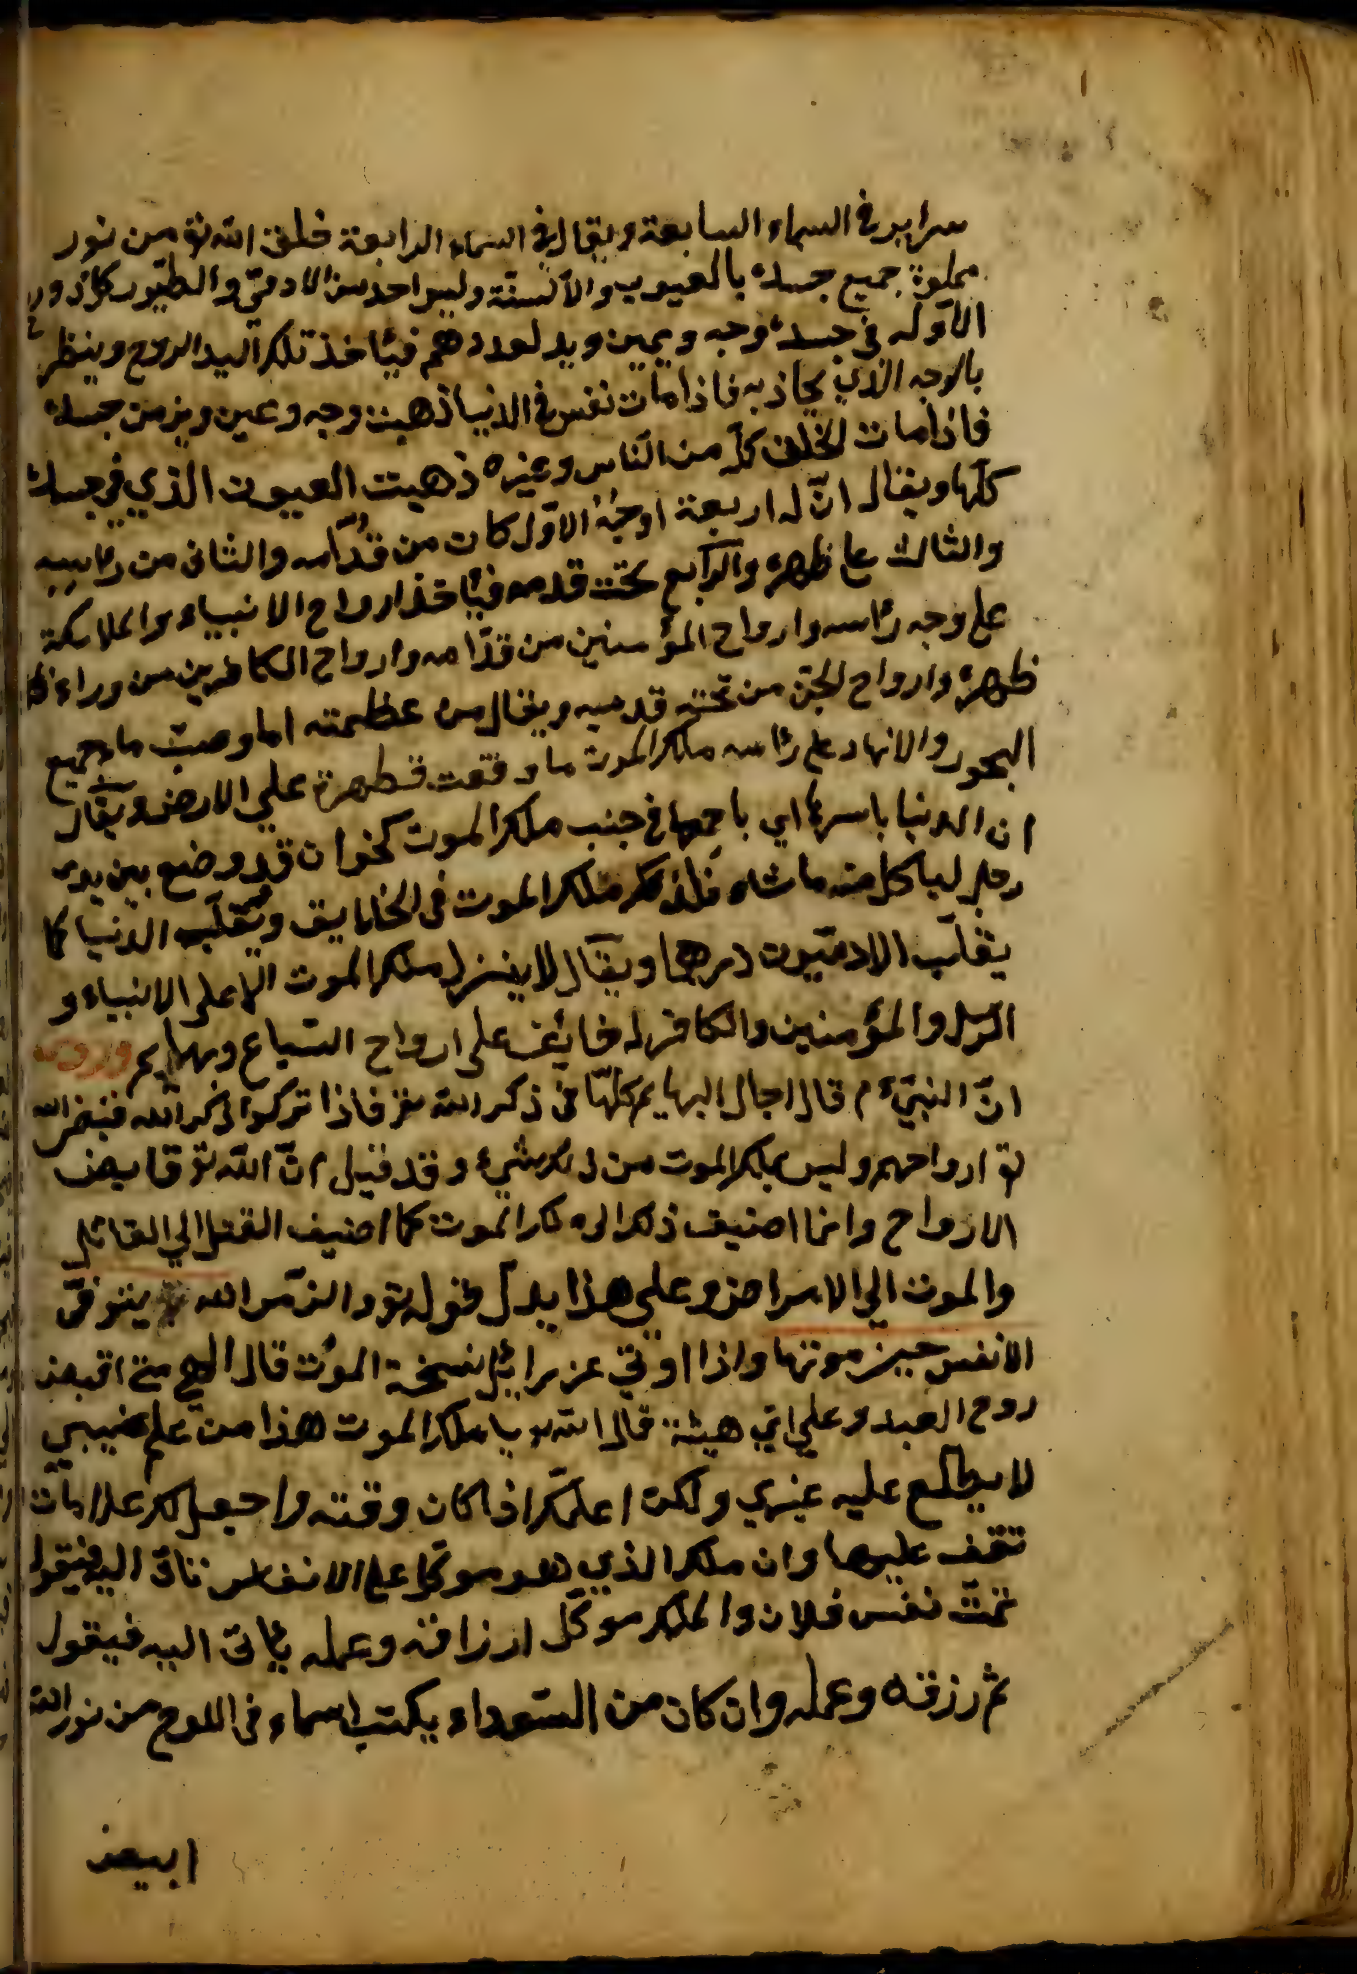 سراير في السماء السابعة ويقال في السماء الرابعة خلق الله تع من نور
مملوة جميع جسده بالعيون والألسنة وليس احد من الادمي والطيور كل ذو روح
الا وله في جسده وجه ويمين ويد لعددهم فيأخذ تلك اليد الروح وينظر
بالوجه الذي يحاذيه فاذا مات نفس في الدنيا ذهبت وجه وعين ويز من جسده
فاذا مات الخلق كله من الناس وغيره ذهبت العيون الذي في جسده
كلها ويقال انّ له اربعة اوجه الاوّل كان من قدّامه والثاني من رأسه
والثالث على ظهره والرابع تحت قدمه فيأخذ ارواح الانبياء والملائكة
على وجه رأسه وارواح المؤمنين من قدّامه وارواح الكافرين من وراء
ظهره وارواح الجنّ من تحته قدميه ويقال من عظمته اما وصبّ ماء جميع
البحور والانهار على رأسه ملك الموت ما وقعت قطهرة علي الارض ويقال
ان الدنيا باسرها اي باجمعها في جنب ملك الموت كخوان قد وضع بين يدى
رجل لياكل منه ما شاء فلذلك ملك الموت في الخلايق ويقلّب الدنيا كما
يقلّب الادميّون درهما ويقال لا ينزل ملك الموت الا على الانبياء و
الرسل والمؤمنين والكافر له خائف على ارواح السباع وبهايم وروى
انّ النبيّ ءم قال اجال البهايم كلّها في ذكر الله عز فاذا تركوا ذكر الله فقبض الله
تع ارواحهم وليس بملك الموت من ذلك شيء وقد قيل انّ الله تع قابض
الارواح وانما اضيف ذلك الى ملك الموت كما اضيف القتل الي القاتل
والموت الي الامراض وعلى هذا يدلّ قوله تع والزمر الله يتوفّى
الانفس حين موتها واذا اوتي عزرائيل نسخة الموت قال الهي متى اقبض
روح العبد وعلي اي هيئة قال الله تع يا ملك الموت هذا من علم غيبي
لا يطلع عليه غيري ولكن اعلمك اذا كان وقته واجعل لك علامات
تقف عليها وان ملك الذي هو موكل على الانفاس تاتى اليه فيقول
تمّت نفس فلان والملك موكّل ارزاقه وعمله يأتى اليه فيقول
تم رزقه وعمله وان كان من السّعداء يكتب اسماء في اللوح من نور الله
ابيض